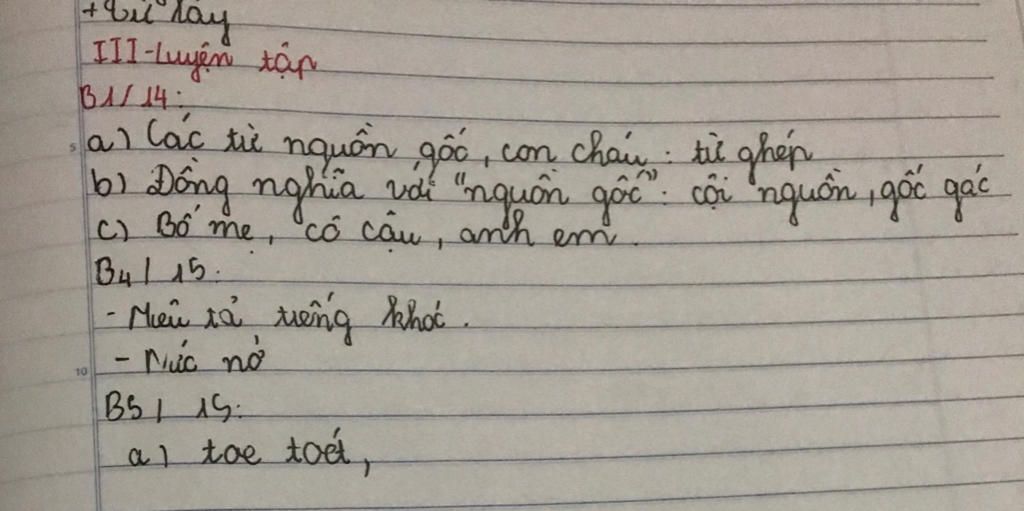 + từ láy
III - Luyện tập
B1/14:
a) Các từ nguồn gốc, con cháu: từ ghép
b) Đồng nghĩa với "nguồn gốc": cội nguồn, gốc gác
c) Bố mẹ, cô cậu, anh em.
B4/15:
- Miêu tả tiếng khóc.
- Nức nở
B5/15:
a) toe toét,